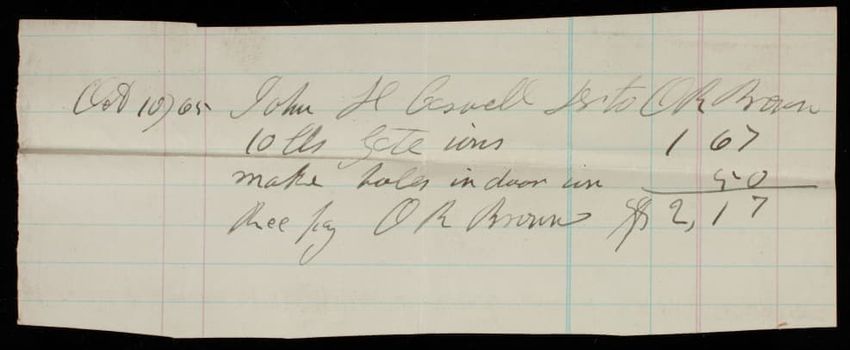 Oct 10/65 John H Caswell Dr to O R Brown
10 lbs Gate irns 1 67
make holes in door irn 50
Rec pay O R Brown $ 2,17